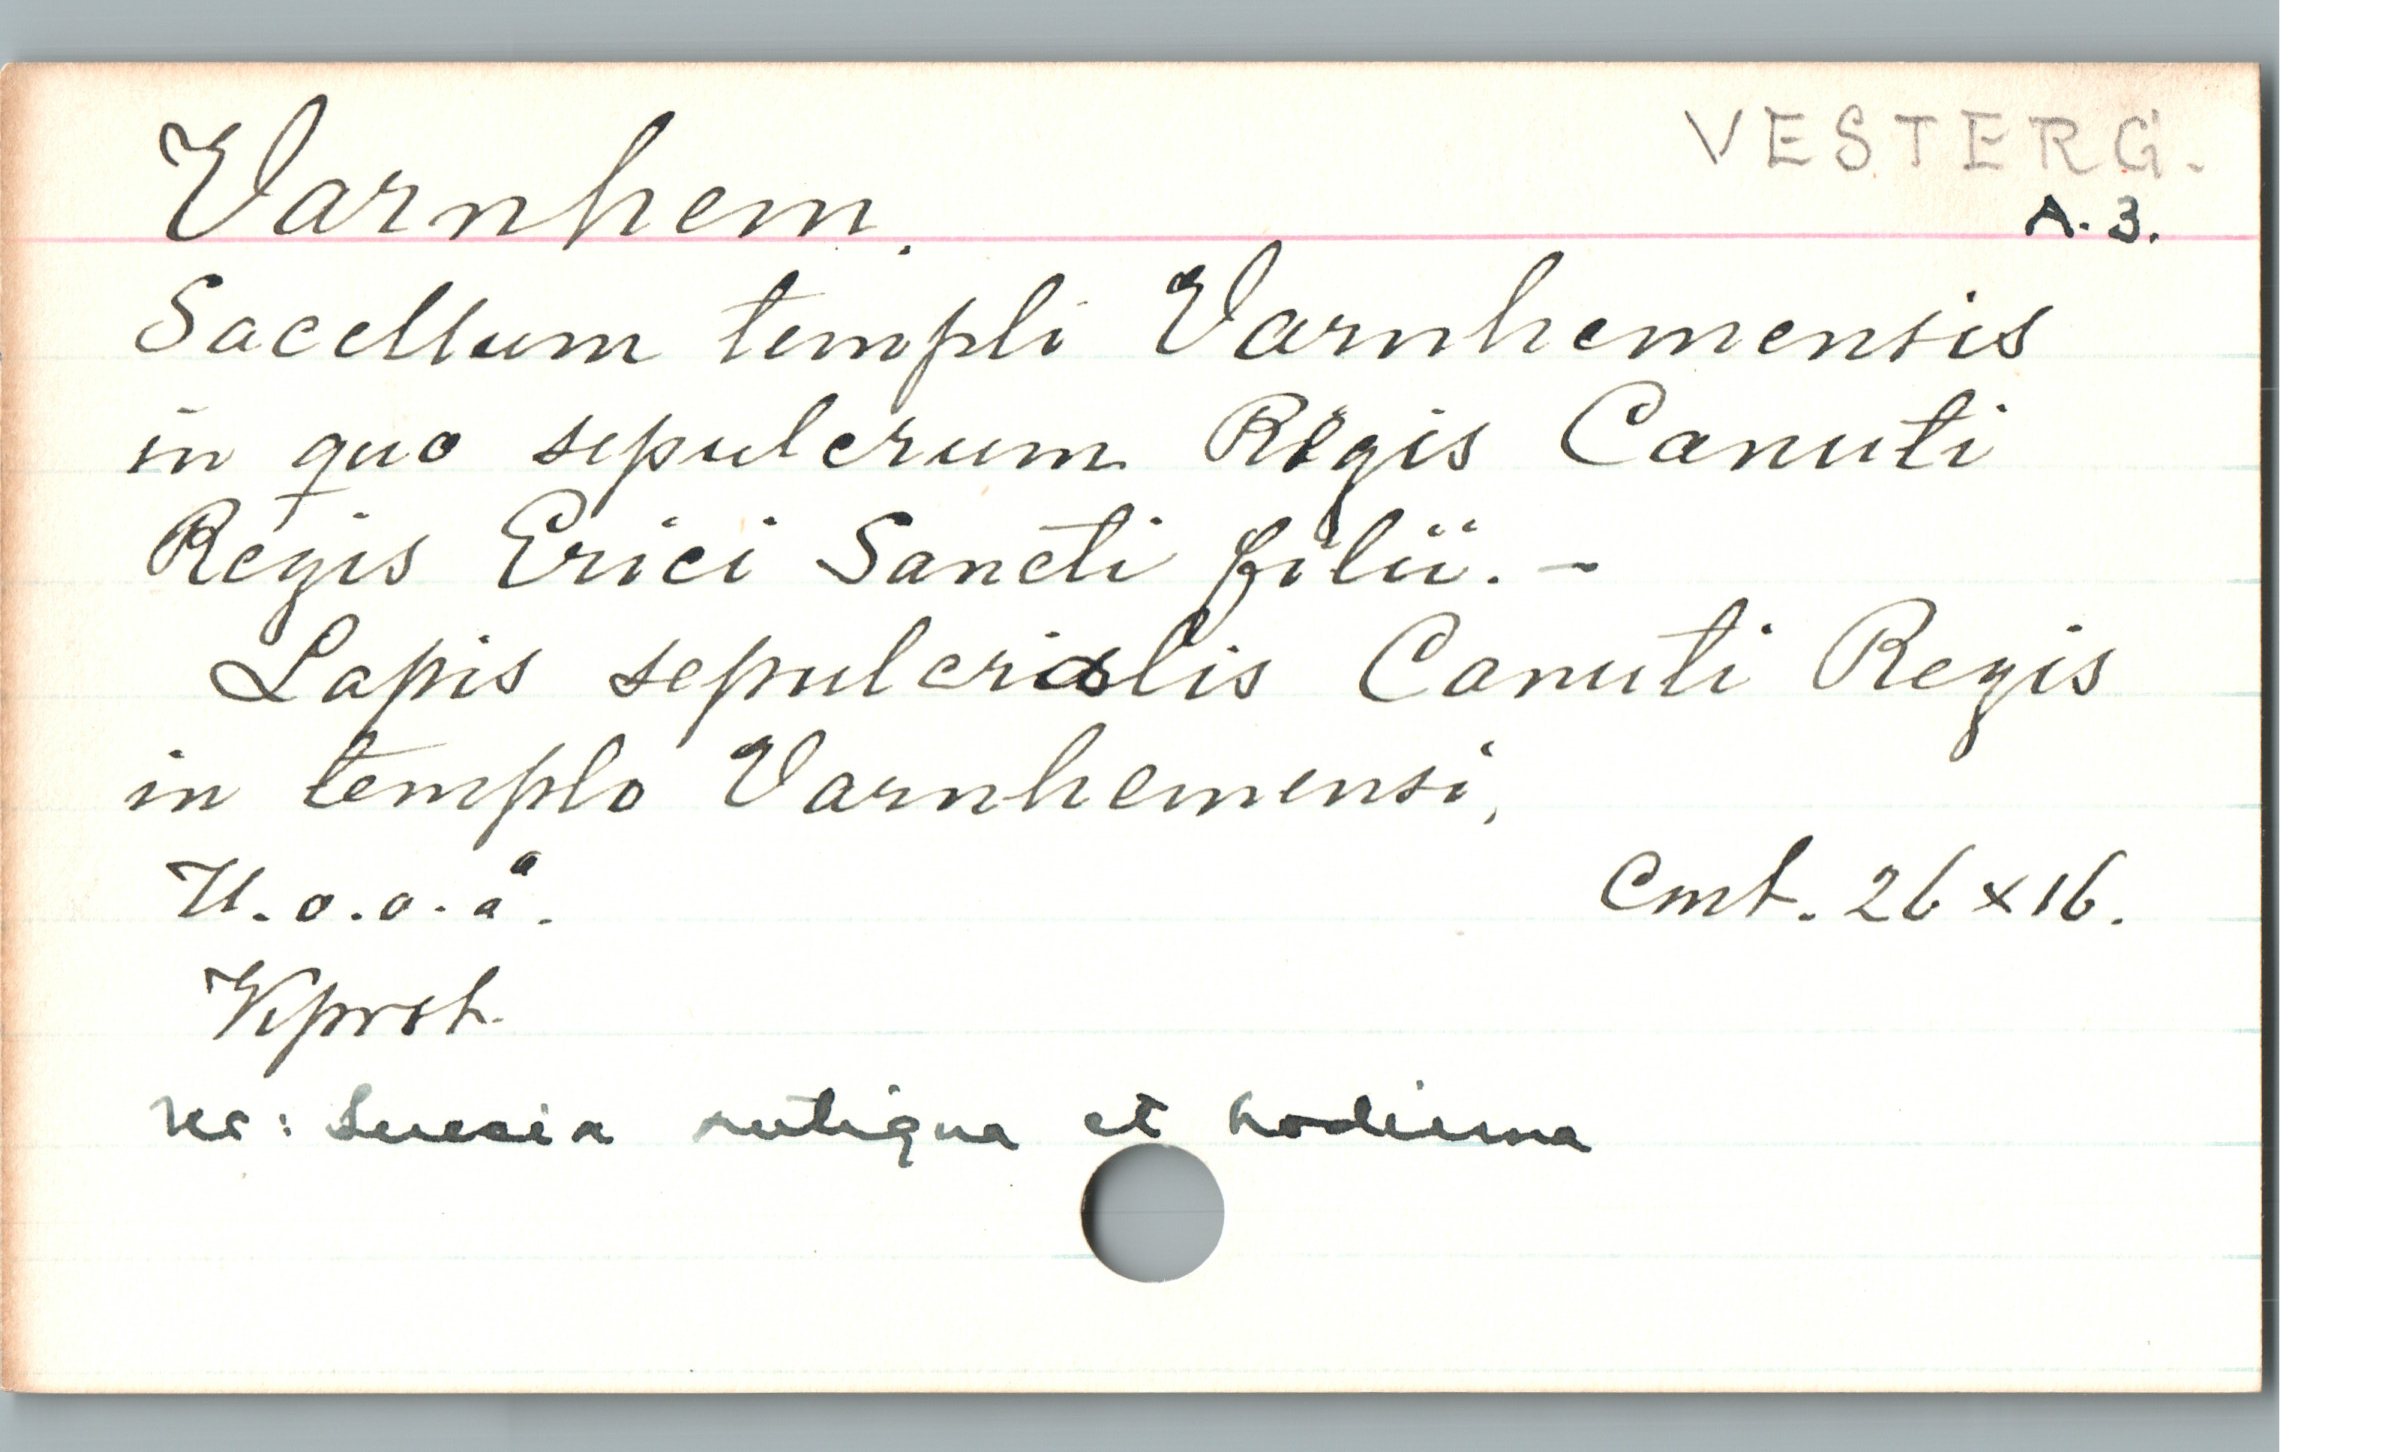 Varnhem.
VESTERG.
A. 3.
Sacellum templi Varnhemensis
in quo sepulcrum Regis Canuti
Regis Erici Sancti filii. -
Lapis sepulcrialis Canuti Regis
in templo Varnhemensi,
U. o. o. å.
Cmt. 26 x 16.
Kprst.
ur: Suecia antiqua et hodierna